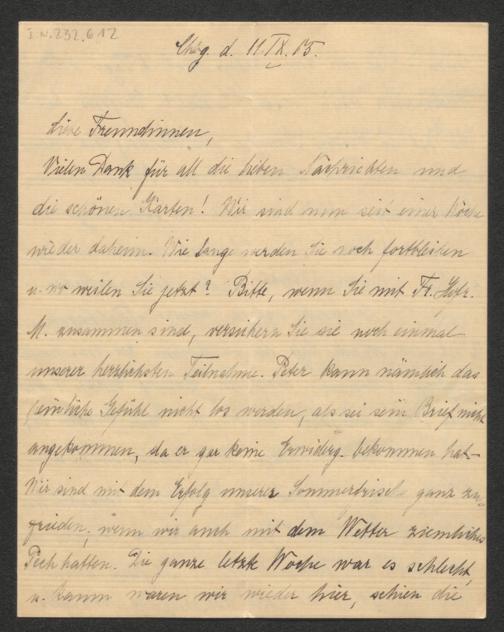 I.N. 232.612
Chbg. d. 11. IX. 05.
Liebe Freundinnen,
Vielen Dank für all die lieben Nachrichten und
die schönen Karten! Wir sind nun seit einer Woche
wieder daheim. Wie lange werden Sie noch fortbleiben
u. wo weilen Sie jetzt? Bitte, wenn Sie mit Fr. Hofr.
M. zusammen sind, versichern Sie sie noch einmal
unserer herzlichsten Teilnahme. Peter kann nämlich das
peinliche Gefühl nicht los werden, als sei sein Brief nicht
angekommen, da er gar keine Erwiderg. bekommen hat.
Wir sind mit dem Erfolg unserer Sommerfrische ganz zu-
frieden, wenn wir auch mit dem Wetter ziemliches
Pech hatten. Die ganze letzte Woche war es schlecht,
u. kaum waren wir wieder hier, schien die